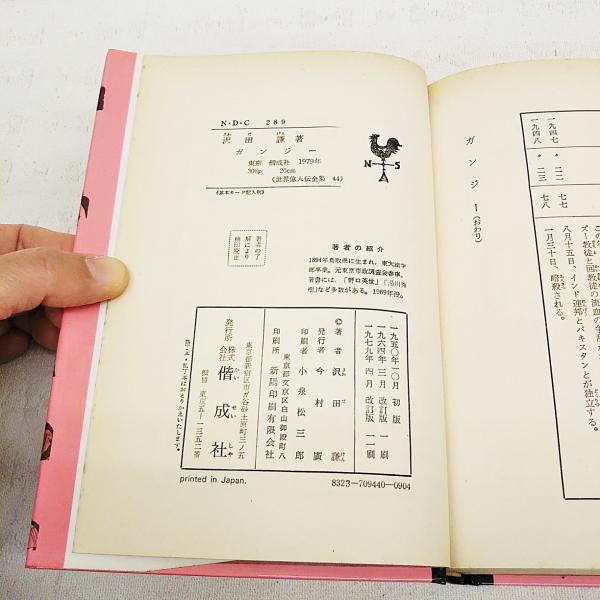 N・D・C 289
さわ だ けん
沢田 謙 著
ガンジー
東京 偕成社 1979年
308p. 20cm
(世界偉人伝全集 44)
(基本カード記入例)
N S
著者の了
解により
検印廃止
著者の紹介
1894年鳥取県に生まれ,東大法学
部卒業。元東京市政調査会参事。
著書には,「野口英世」「湯川秀
樹」など多数がある。1969年没。
一九五〇年一〇月 初版
一九六四年三月 改訂版 一刷
一九七九年四月 改訂版 一一刷
©著者 沢田 謙
さわ だ けん
発行者 今村廣
印刷者 小泉松三郎
東京都文京区白山御殿町八
印刷所 新陽印刷有限会社
東京都新宿区市ガ谷砂土原町三ノ五
発行所 株式会社 偕成社
かい せい しゃ
振替 東京五-一三五二番
乱丁本・落丁本はおとりかえいたします。
printed in Japan.
8323-709440-0904
一九四七 七七
一九四八 〃 七八
ズー教徒と回教徒の流血の争
八月十五日、インド連邦とパキスタンとが独立する。
一月三十日、暗殺される。
ガンジー(おわり)